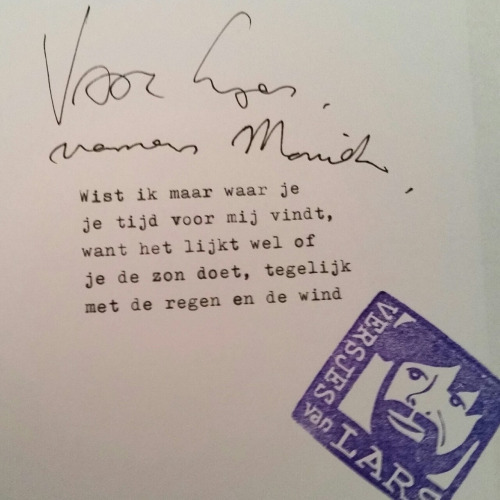 Voor
namens
Wist ik maar waar je
je tijd voor mij vindt,
want het lijkt wel of
je de zon doet, tegelijk
met de regen en de wind
VERSJES
van
LARS